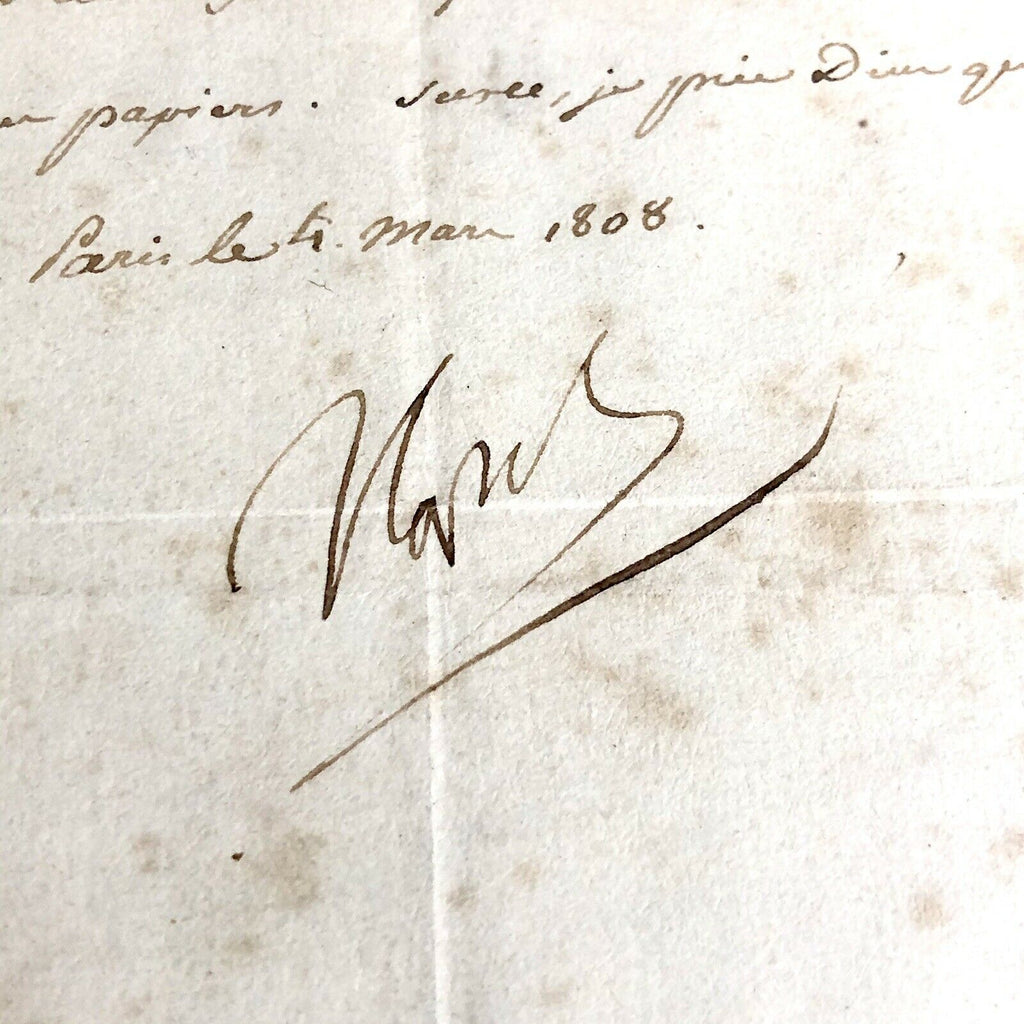 papiers. Sur ce, je prie Dieu qu
Paris le 4. Mars 1808.
Nap